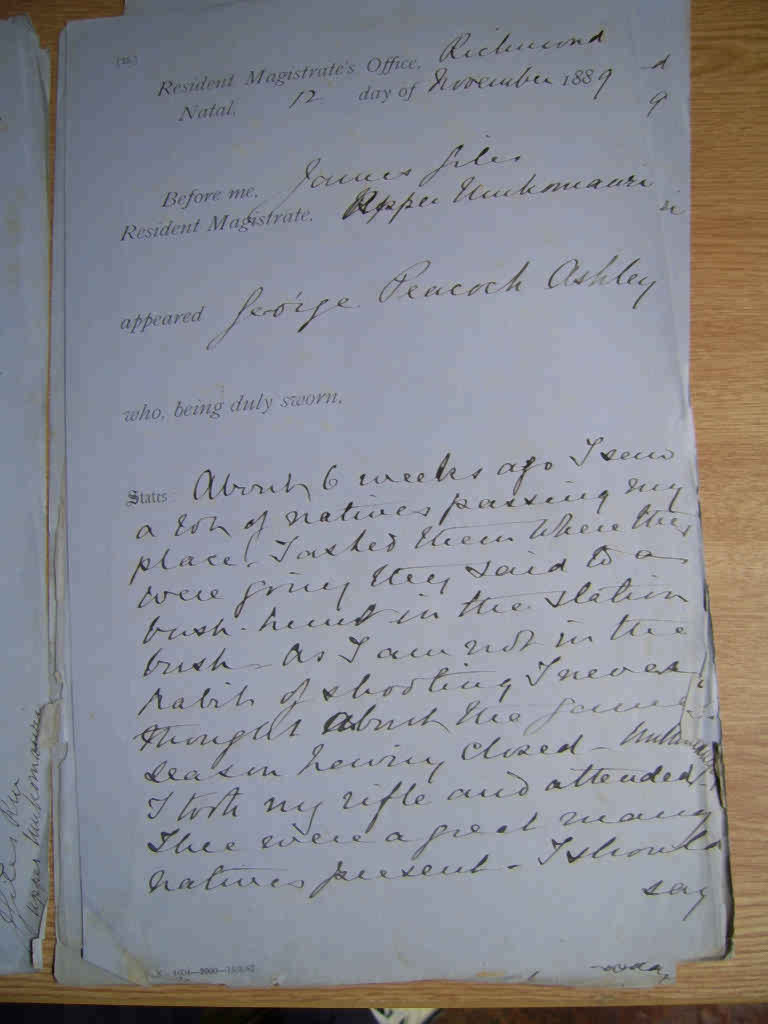 (25.)
Resident Magistrate's Office, Richmond
Natal, 12 day of November 1889
d
9
Before me, James Giles
Resident Magistrate. Upper Umkomanzi
zi
appeared George Peacock Ashley
who, being duly sworn,
States About 6 weeks ago I seen
a lot of natives passing my
place. I asked them where they
were going they said to a
bush-hunt in the station
bush - As I am not in the
habit of shooting I never
thought about the game
season having closed -
I took my rifle and attended
There were a great many
natives present - I should
say
Giles RM
Upper Umkomanzi